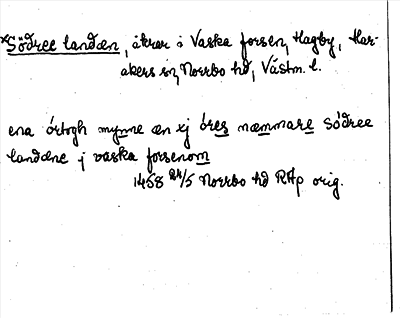 *Södree landæn, åkrar i Vaska forsen, Hagby, Har-
akers sn, Norrbo hd, Västm. l.
ena örtogh mynne æn xj öres næmmare Södree
landæne j vaska forsenom
1458 24/5 Norrbo hd RAp orig.